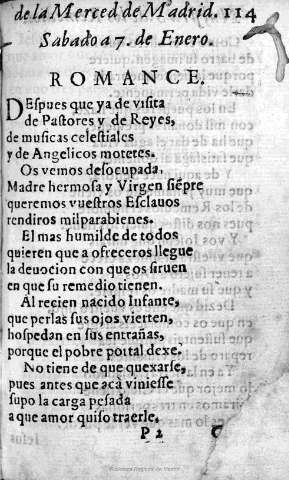 de la Merced de Madrid. 114
Sabado a 7. de Enero.
ROMANCE.
DEspues que ya de visita
de Pastores y de Reyes,
de musicas celestiales
y de Angelicos motetes.
Os vemos desocupada,
Madre hermosa y Virgen siēpre
queremos vuestros Esclauos
rendiros mil parabienes.
El mas humilde de todos
quieren que a ofreceros llegue
la deuocion con que os siruen
en que su remedio tienen.
Al recien nacido Infante,
que perlas sus ojos vierten,
hospedan en sus entrañas,
porque el pobre portal dexe.
No tiene de que quexarse,
pues antes que acà viniesse
supo la carga pesada
a que amor quiso traerle,
P 2